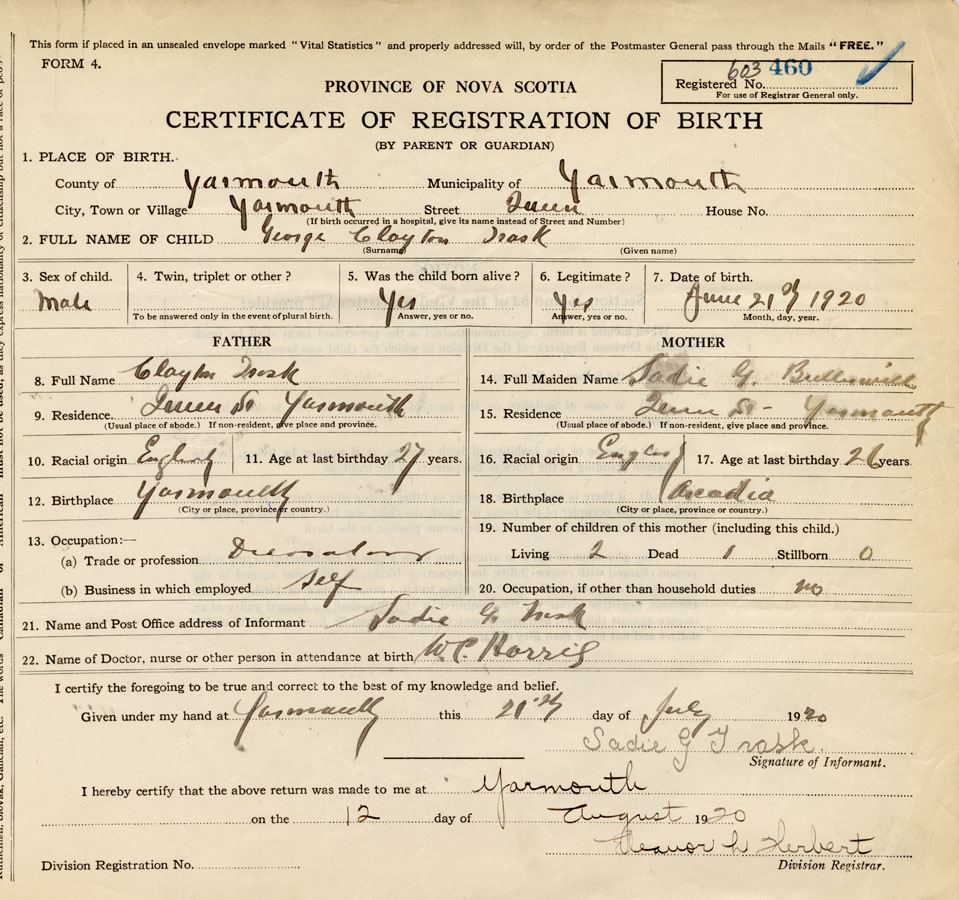 This form if placed in an unsealed envelope marked "Vital Statistics" and properly addressed will, by order of the Postmaster General pass through the Mails "FREE."
FORM 4.
603 460
Registered No.
For use of Registrar General only.
PROVINCE OF NOVA SCOTIA
CERTIFICATE OF REGISTRATION OF BIRTH
(BY PARENT OR GUARDIAN)
1. PLACE OF BIRTH.
County of Yarmouth Municipality of Yarmouth
City, Town or Village Yarmouth Street House No.
(If birth occurred in a hospital, give its name instead of Street and Number)
2. FULL NAME OF CHILD George Clayton Trask
(Surname) (Given name)
3. Sex of child. 4. Twin, triplet or other? 5. Was the child born alive? 6. Legitimate? 7. Date of birth.
Male Yes Yes June 21st 1920
To be answered only in the event of plural birth. Answer, yes or no. Answer, yes or no. Month, day, year.
FATHER
8. Full Name Clayton Trask
9. Residence. St Yarmouth
(Usual place of abode.) If non-resident, give place and province.
10. Racial origin English 11. Age at last birthday 27 years.
12. Birthplace Yarmouth
(City or place, province or country.)
13. Occupation:—
(a) Trade or profession
(b) Business in which employed self
MOTHER
14. Full Maiden Name Sadie G.
15. Residence St - Yarmouth
(Usual place of abode.) If non-resident, give place and province.
16. Racial origin English 17. Age at last birthday 26 years.
18. Birthplace Arcadia
(City or place, province or country.)
19. Number of children of this mother (including this child.)
Living 2 Dead 1 Stillborn 0
20. Occupation, if other than household duties no
21. Name and Post Office address of Informant Sadie G. Trask
22. Name of Doctor, nurse or other person in attendance at birth W.C. Harris
I certify the foregoing to be true and correct to the best of my knowledge and belief.
Given under my hand at Yarmouth this day of July 1920
Sadie G Trask.
Signature of Informant.
I hereby certify that the above return was made to me at Yarmouth
on the 12 day of August 1920
Eleanor L Herbert
Division Registration No. Division Registrar.